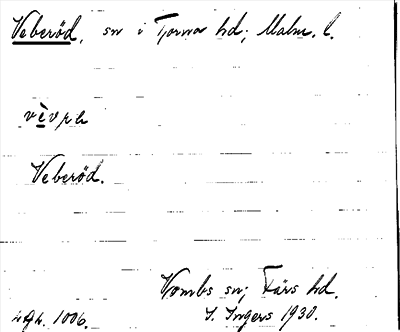 Veberöd, sn i Torna hd; Malm. l.
Veberöd.
Vombs sn; Färs hd.
I. Ingers 1930.
1006.